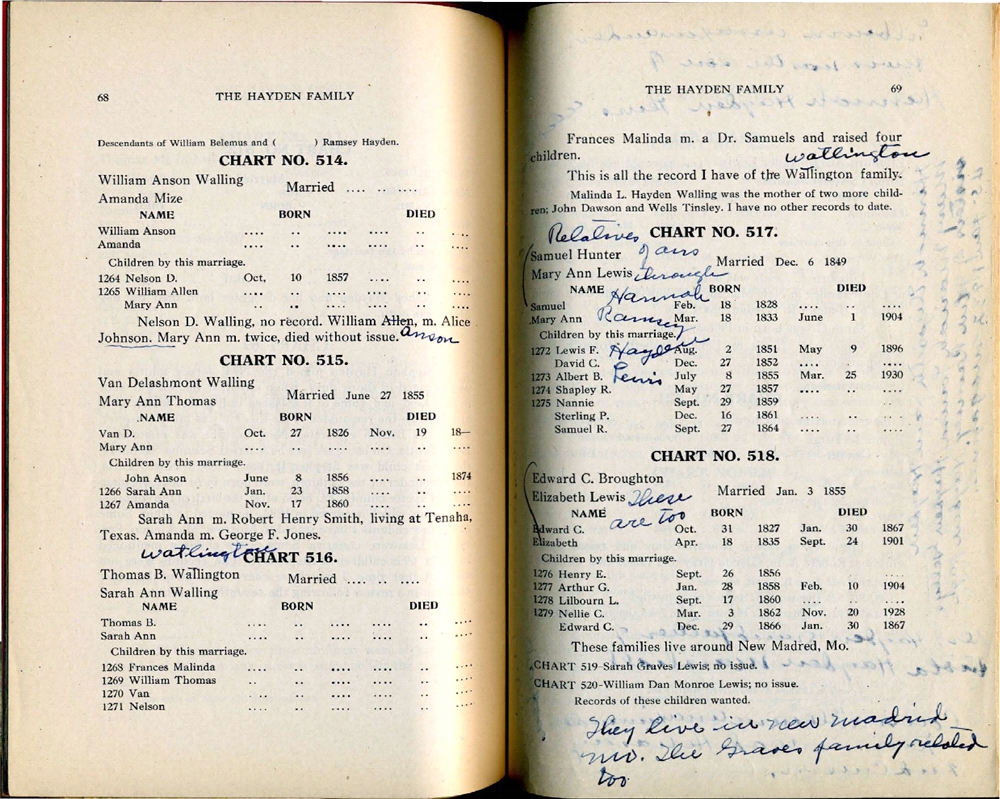 68 THE HAYDEN FAMILY
Descendants of William Belemus and ( ) Ramsey Hayden.
CHART NO. 514.
William Anson Walling
Married .... .. ....
Amanda Mize
NAME BORN DIED
William Anson .... .. .... .... .. ....
Amanda .... .. .... .... .. ....
Children by this marriage.
1264 Nelson D. Oct, 10 1857 .... .. ....
1265 William Allen .... .. .... .... .. ....
Mary Ann .... .. .... .... .. ....
Nelson D. Walling, no record. William Allen, m. Alice
Johnson. Mary Ann m. twice, died without issue. Anson
CHART NO. 515.
Van Delashmont Walling
Married June 27 1855
Mary Ann Thomas
NAME BORN DIED
Van D. Oct. 27 1826 Nov. 19 18—
Mary Ann .... .. .... .... .. ....
Children by this marriage.
John Anson June 8 1856 .... .. 1874
1266 Sarah Ann Jan. 23 1858 .... .. ....
1267 Amanda Nov. 17 1860 .... .. ....
Sarah Ann m. Robert Henry Smith, living at Tenaha,
Texas. Amanda m. George F. Jones.
Watlington
CHART NO. 516.
Thomas B. Wallington
Married .... .. ....
Sarah Ann Walling
NAME BORN DIED
Thomas B. .... .. .... .... .. ....
Sarah Ann .... .. .... .... .. ....
Children by this marriage.
1268 Frances Malinda .... .. .... .... .. ....
1269 William Thomas .... .. .... .... .. ....
1270 Van .. .. .... .... .. ....
1271 Nelson .... .. .... .... .. ....
THE HAYDEN FAMILY 69
Frances Malinda m. a Dr. Samuels and raised four
children.
Watlington
This is all the record I have of the Wallington family.
Malinda L. Hayden Walling was the mother of two more child-
ren; John Dawson and Wells Tinsley. I have no other records to date.
Relatives
CHART NO. 517.
Samuel Hunter of ours
Married Dec. 6 1849
Mary Ann Lewis through
NAME BORN DIED
Hannah
Samuel Feb. 18 1828 .... .. ....
Mary Ann Ramsey Mar. 18 1833 June 1 1904
Children by this marriage.
1272 Lewis F. Hayden Aug. 2 1851 May 9 1896
David C. Dec. 27 1852 .... ..
1273 Albert B. Lewis July 8 1855 Mar. 25 1930
1274 Shapley R. May 27 1857 .... .. ....
1275 Nannie Sept. 29 1859
Sterling P. Dec. 16 1861 .... .. ....
Samuel R. Sept. 27 1864 .... .. ....
CHART NO. 518.
Edward C. Broughton
Married Jan. 3 1855
Elizabeth Lewis These
NAME BORN DIED
are too
Edward C. Oct. 31 1827 Jan. 30 1867
Elizabeth Apr. 18 1835 Sept. 24 1901
Children by this marriage.
1276 Henry E. Sept. 26 1856 ....
1277 Arthur G. Jan. 28 1858 Feb. 10 1904
1278 Lilbourn L. Sept. 17 1860 .... .. ....
1279 Nellie C. Mar. 3 1862 Nov. 20 1928
Edward C. Dec. 29 1866 Jan. 30 1867
These families live around New Madred, Mo.
CHART 519-Sarah Graves Lewis; no issue.
CHART 520-William Dan Monroe Lewis; no issue.
Records of these children wanted.
They live in New Madrid
Mo. The Graves family related
too